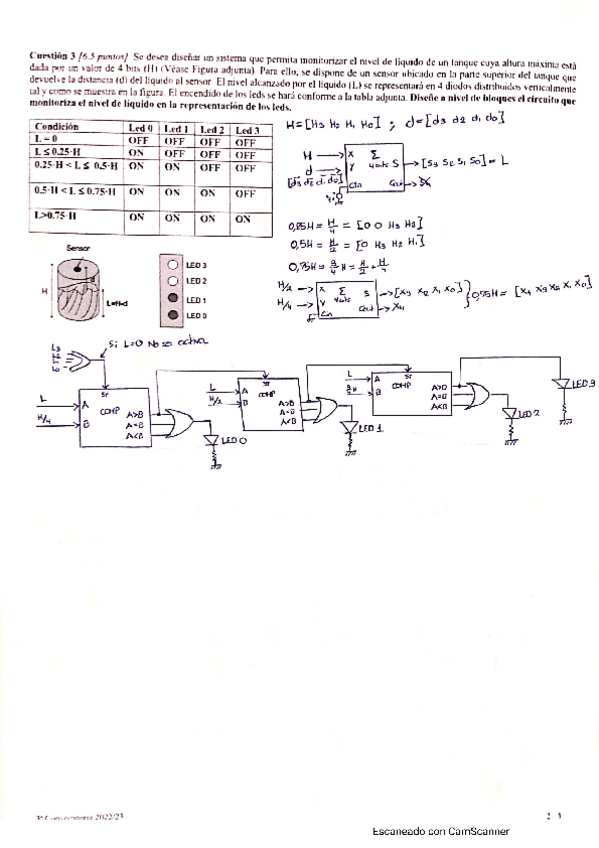 Cuestión 3 [6.5 puntos] Se desea diseñar un sistema que permita monitorizar el nivel de líquido de un tanque cuya altura máxima está
dada por un valor de 4 bits (H) (Véase Figura adjunta). Para ello, se dispone de un sensor ubicado en la parte superior del tanque que
devuelve la distancia (d) del líquido al sensor. El nivel alcanzado por el líquido (L) se representará en 4 diodos distribuidos verticalmente
tal y como se muestra en la figura. El encendido de los leds se hará conforme a la tabla adjunta. Diseñe a nivel de bloques el circuito que
monitoriza el nivel de líquido en la representación de los leds.
H=[H3 H2 H1 H0] ; d=[d3 d2 d1 d0]
Condición Led 0 Led 1 Led 2 Led 3
L = 0 OFF OFF OFF OFF
L ≤ 0.25·H ON OFF OFF OFF
0.25·H < L ≤ 0.5·H ON ON OFF OFF
0.5·H < L ≤ 0.75·H ON ON ON OFF
L>0.75·H ON ON ON ON
H X Σ
d Y 4bits S [S3 S2 S1 S0] = L
[d3 d2 d1 d0] Cin Cout
0,25H = H/4 = [0 0 H3 H2]
0,5H = H/2 = [0 H3 H2 H1]
0,75H = 3/4 H = H/2 + H/4
H/2 X Σ S [X3 X2 X1 X0]
H/4 Y 4bits Cout X4
Cin
0,75H = [X4 X3 X2 X1 X0]
Sensor
H
d
L=H-d
LED 3
LED 2
LED 1
LED 0
Si L=0 No se activa
L A COMP A>B
H/4 B A=B
A<B
LED 0
L A COMP A>B
H/2 B A=B
A<B
LED 1
L A COMP A>B
B A=B
A<B
LED 2
LED 3
3ª Convocatoria 2022/23
Escaneado con CamScanner